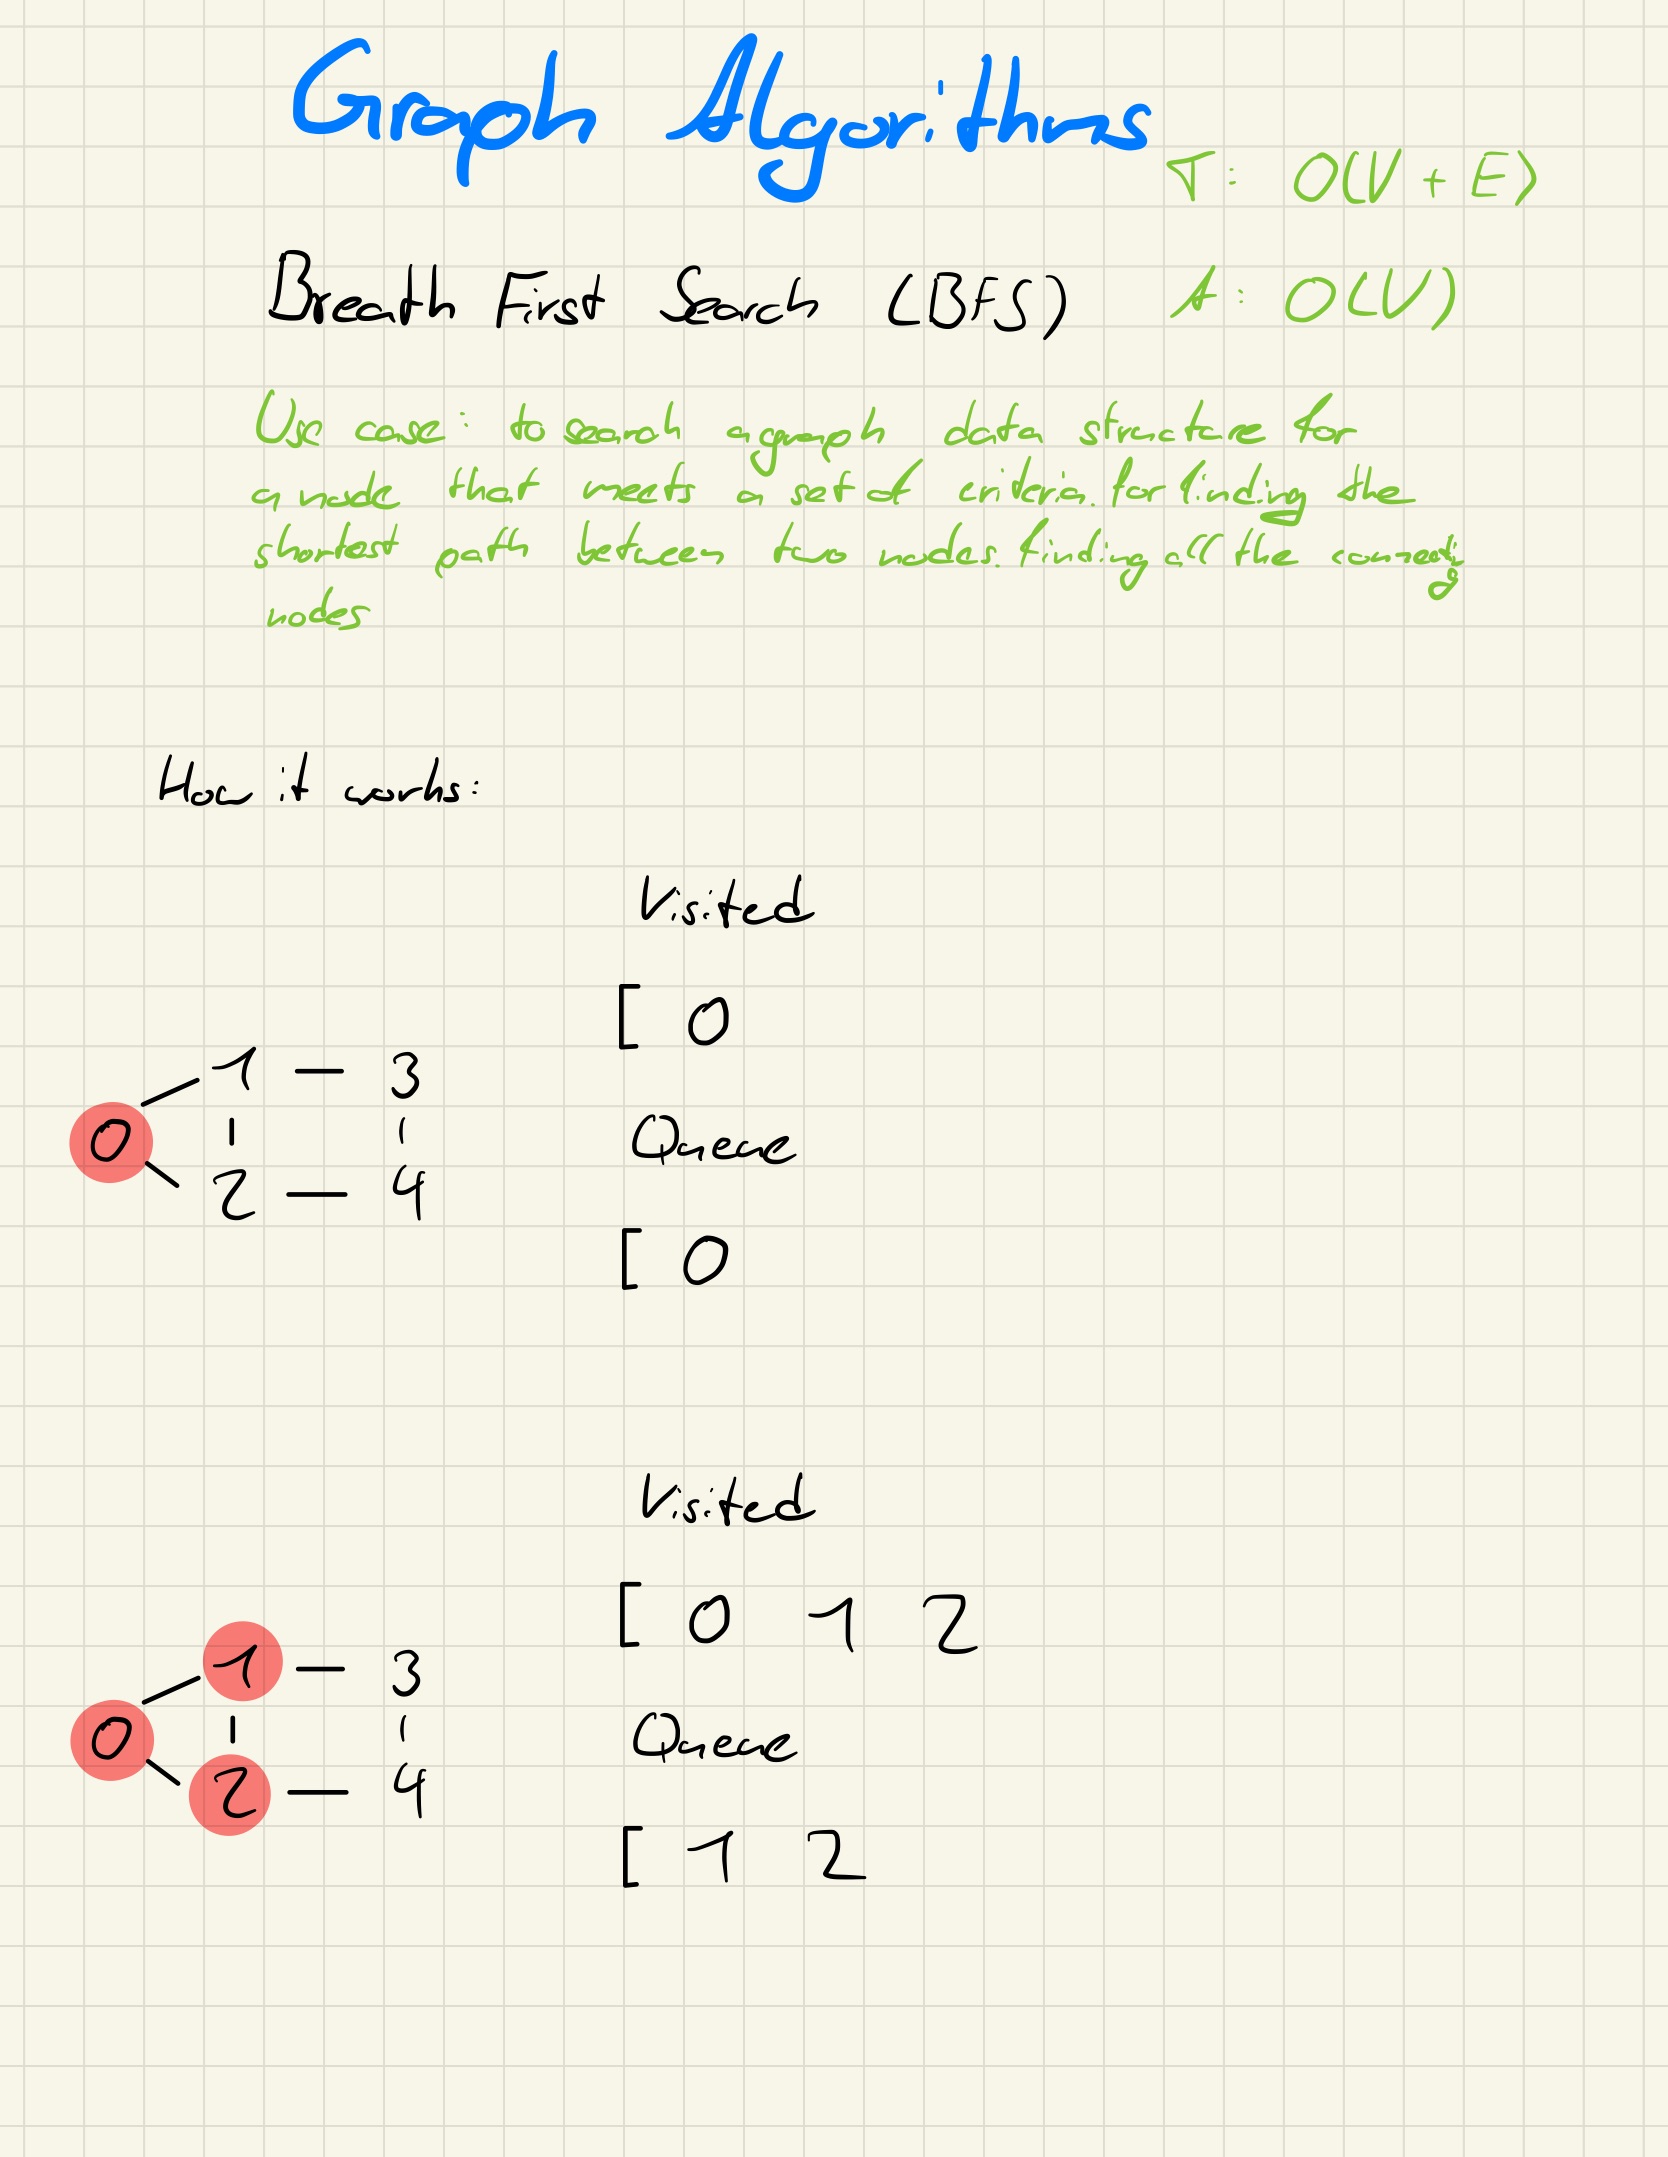 Graph Algorithms
T: O(V + E)
Breath First Search (BFS)
A: O(V)
Use case: to search a graph data structure for
a node that meets a set of criteria. for finding the
shortest path between two nodes. finding all the connecting
nodes
How it works:
Visited
[ 0
1 — 3
0
Queue
2 — 4
[ 0
Visited
[ 0 1 2
1 — 3
0
Queue
2 — 4
[ 1 2